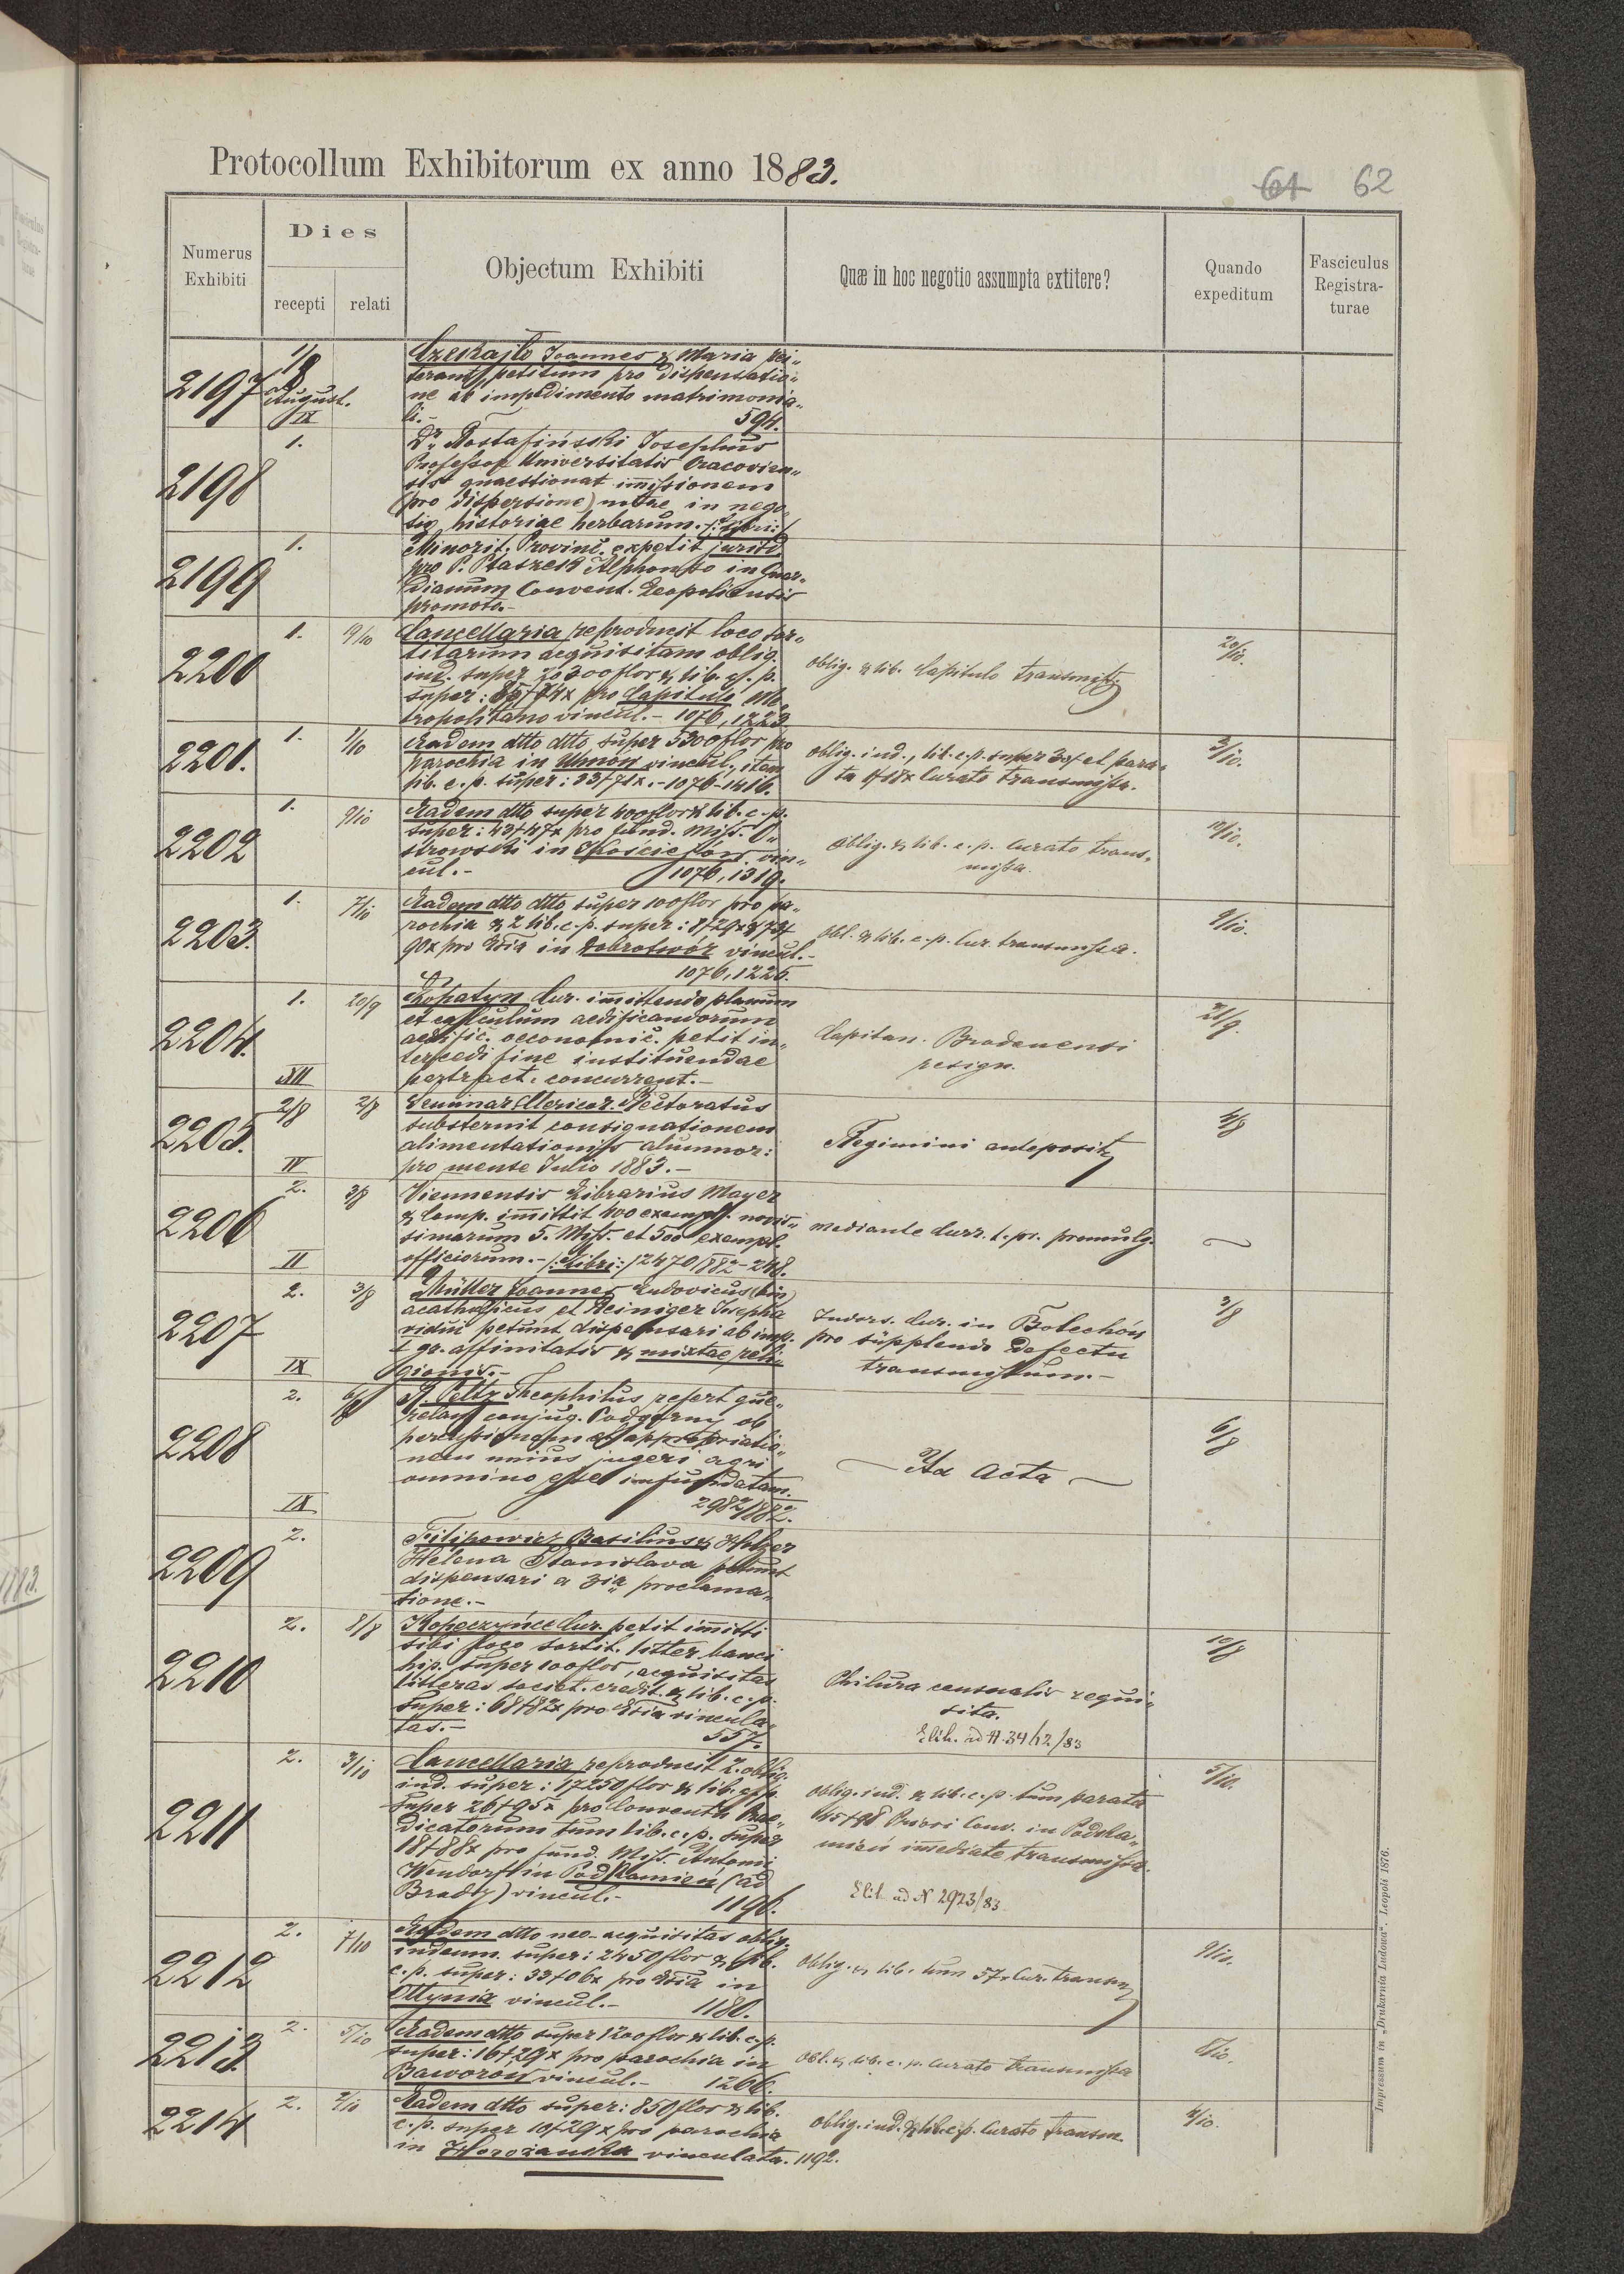 Protocollum Exhibitorum ex anno 1883.
61 62
Numerus Exhibiti
Dies
recepti
relati
Objectum Exhibiti
Quæ in hoc negotio assumpta extitere?
Quando expeditum
Fasciculus Registra-
turae
2197
1/8
August.
IX
Joannes & Maria rei„
terant petitum pro dispensatio„
ne ab impedimento matrimonia„
li.- 594.
2198
1.
Dr. Rostafiński Josephus
Professor Universitatis Cracovien„
sis quaestionat immissionem
(pro dispersione) in nego„
tio historiae herbarum.
2199
1.
Minorit. Provinc. expetit jurisd.
pro P. Ptaszek Alphonso in Guar„
dianum Convent. Leopoliensis
promoto.-
2200
1.
19/10
Cancellaria reproducit loco sor„
titarum acquisitam oblig.
ind. super 20300 flor & lib. c. p.
super: pro Capitulo Me„
tropolitano vincul.- 1076, 1223.
oblig. & lib. Capitulo transmitt.
20/10.
2201.
1.
1/10
Eadem dtto dtto super 5300 flor pro
parochia in vincul., item
lib. c. p. super: 33f71x.- 1076-1416.
oblig. ind., lib. c. p. super 30f et para„
ta Curato transmissa.
3/10.
2202
1.
9/10
Eadem dtto super 400 flor & lib. c. p.
super: 43f47x pro fund. Miss. O„
strowski in vin„
cul.- 1076, 1319.
oblig. & lib. c. p. curato trans„
missa.
10/10.
2203.
1.
7/10
Eadem dtto dtto super 100 flor pro pa„
rochia & 2 lib. c. p. super: 8f29x & 73f
90x pro Ecclia in Dobrotwór vincul.-
1076, 1225.
obl. & lib. c. p. Cur. transmissa.
9/10.
2204.
1.
XII
20/9
Łopatyn Cur. immittendo planum
et calculum aedificandorum
aedific. oeconomic. petit in„
tercedi fine instituendae
pertract. concurrent.-
Capitan. Brodenensi
resign.
21/9.
2205.
2/8
IV
2/8
Seminar. Clericor. Rectoratus
substernit consignationem
alimentationis alumnor:
pro mense Julio 1883.-
Regimini anteposit.
4/8
2206
2.
II
3/8
Viennensis Librarius Mayer
& Comp. immittit 400 exempl. novis„
simarum 5. Miss. et 500 exempl.
officiorum.- /:Libri:/ 2470/882-248.
mediante Curr. t. pr. promulg.
2207
2.
IX
3/8
Müller Joannes Ludovicus
acatholicus et Reiniger Josepha
vidui petunt dispensari ab imp.
I gr. affinitatis & mixtae reli„
gionis.-
Indors. Cur. in Bolechów
pro supplendo defectu
transmissum.-
3/8
2208
2.
IX
6/8
Peltz Theophilus refert que„
relam conjug. Podgórny ob
percussionem et appropriatio„
nem unius jugeri agri
omnino esse infundatam.
2982/882.
Ad Acta
6/8
2209
2.
Filipowicz Basilius &
Helena Stanislava petunt
dispensari a 3ia proclama„
tione.-
2210
2.
8/8
Kopeczyńce Cur. petit immitti
sibi loco sortit. litter. banci
hip. super 100 flor, acquisitas
litteras societ. credit. & lib. c. p.
super: 68f82x pro Ecclia vincula„
tas.- 557.
Philura censualis requi„
sita.
10/8
2211
2.
3/10
Cancellaria reproducit 2. oblig.
ind. super: 17250 flor & lib. c. p.
super 26f95x pro Conventu Prae„
dicatorum tum lib. c. p. super
18f88x pro fund. Miss. Antonii
Wendorff in Podkamień (ad
Brody) vincul.- 1196.
oblig. ind. & lib. c. p. tum parata
Priori Conv. in Podka„
mień immediate transmissa.
Elib. ad N 2923/83
5/10.
2212
2.
7/10
Eadem dtto neo-acquisitas oblig.
indemn. super: 2450 flor & lib.
c. p. super: 33f06x pro Ecclia in
Ottynia vincul.- 1180.
oblig. & lib. tum 57x Cur. transm.
9/10.
2213.
2.
5/10
Eadem dtto super 1200 flor & lib. c. p.
super: 16f29x pro parochia in
Baworów vincul.- 1266.
obl. & lib. c. p. Curato transmissa
2214
2.
2/10
Eadem dtto super: 850 flor & lib.
c. p. super 10f29x pro parochia
in Horożanka vinculata. 1192.
oblig. ind. & lib. c. p. Curato transm.
4/10.
Impressum in „Drukarnia Ludowa“. Leopoli 1876.